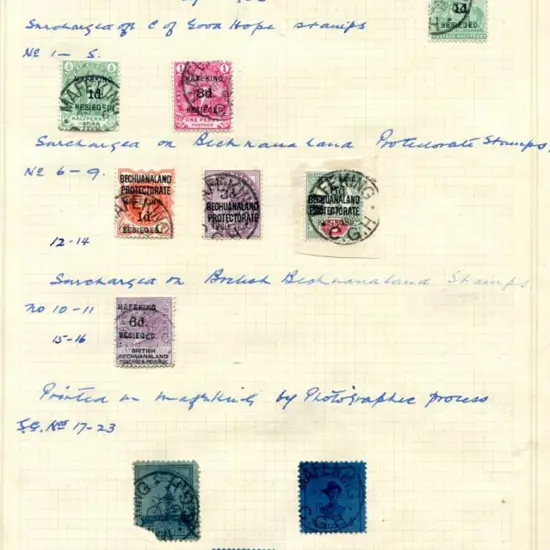 Surcharged on C of Good Hope stamps
1d
No 1 - 5.
MAFEKING
1d.
BESIEGED.
MAFEKING
3d
BESIEGED.
Surcharged on Bechuanaland Protectorate Stamps.
No 6 - 9.
BECHUANALAND
PROTECTORATE
1d
BESIEGED.
BECHUANALAND
PROTECTORATE
MAFEKING
BECHUANALAND
PROTECTORATE
C.G.H
12-14
Surcharged on British Bechuanaland Stamps
No 10 - 11
15-16
MAFEKING
6d.
BESIEGED.
BRITISH
BECHUANALAND
Printed in Mafeking by Photographic process
S.G. Nos 17-23
MAFEKING
C.G.H